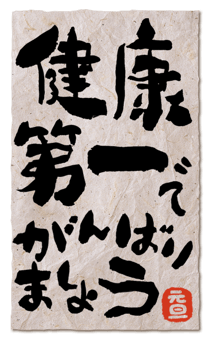 健康
第一で
がんばり
ましょう
元旦